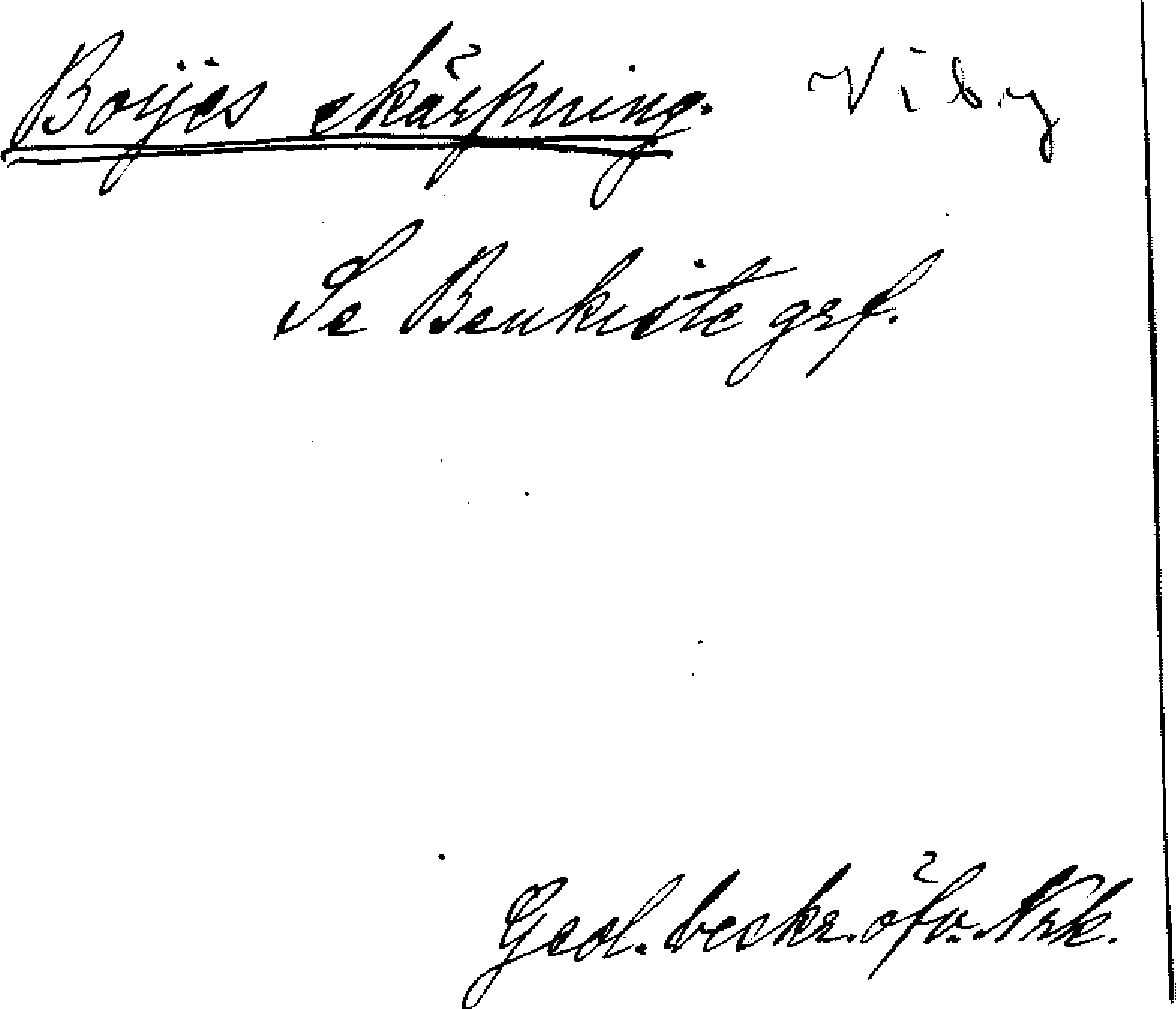 Boijes skärpning. Viby
Se Benkistegrf.
Geol. beskr. öfv. Nrk.